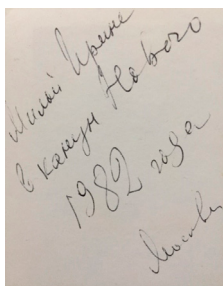 Милой Ирине
в канун Нового
1982 года
Москва